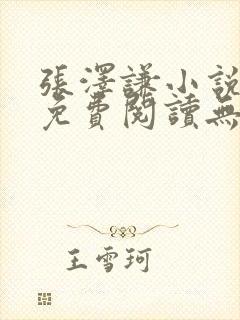 張澤謙小說
免費閱讀無
王雪珂